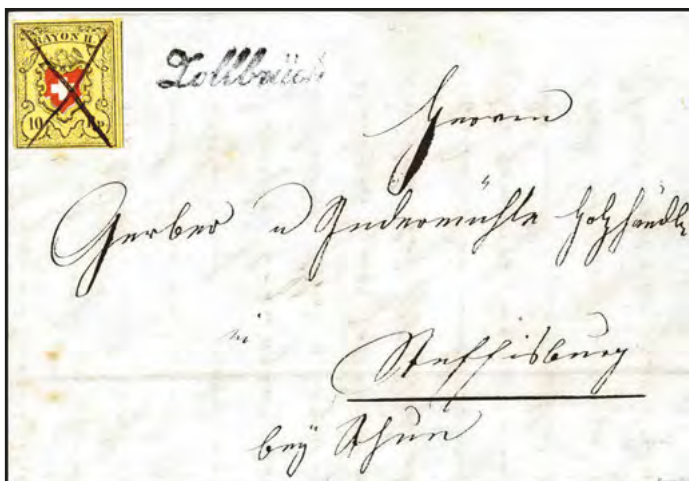 RAYON II.
10 Rp.
Zollbrück
Herren
Gerber u Indermühle Holzhändler
in
Steffisburg
bey Thun